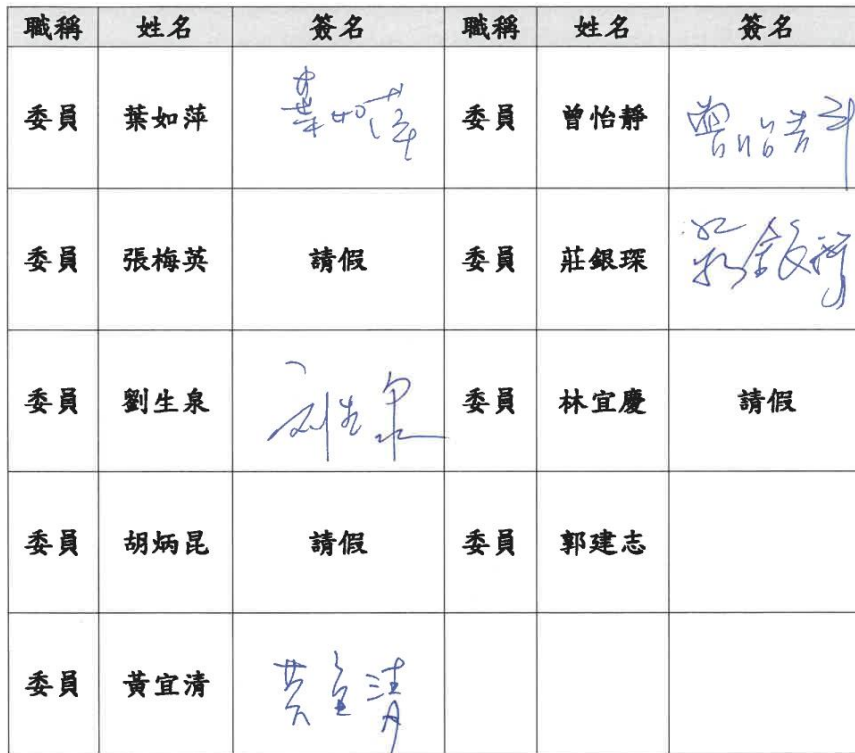 職稱 姓名 簽名 職稱 姓名 簽名
委員 葉如萍 葉如萍 委員 曾怡靜 曾怡靜
委員 張梅英 請假 委員 莊銀琛 莊銀琛
委員 劉生泉 刘生泉 委員 林宜慶 請假
委員 胡炳昆 請假 委員 郭建志
委員 黃宜清 黃宜清